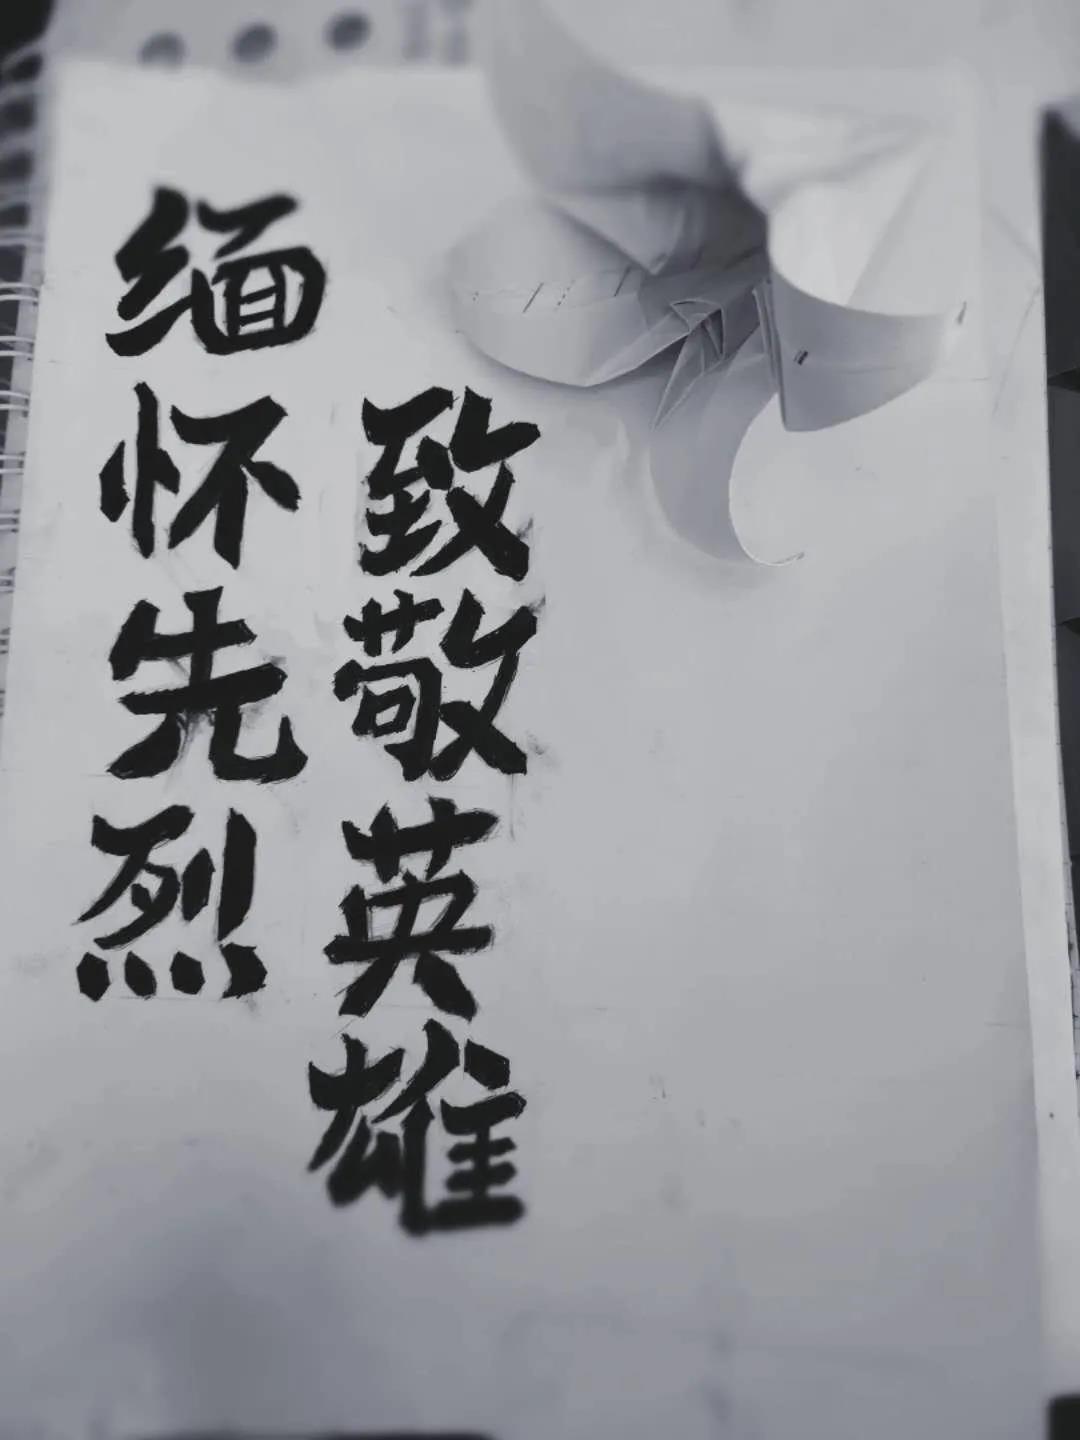 缅怀先烈
致敬英雄